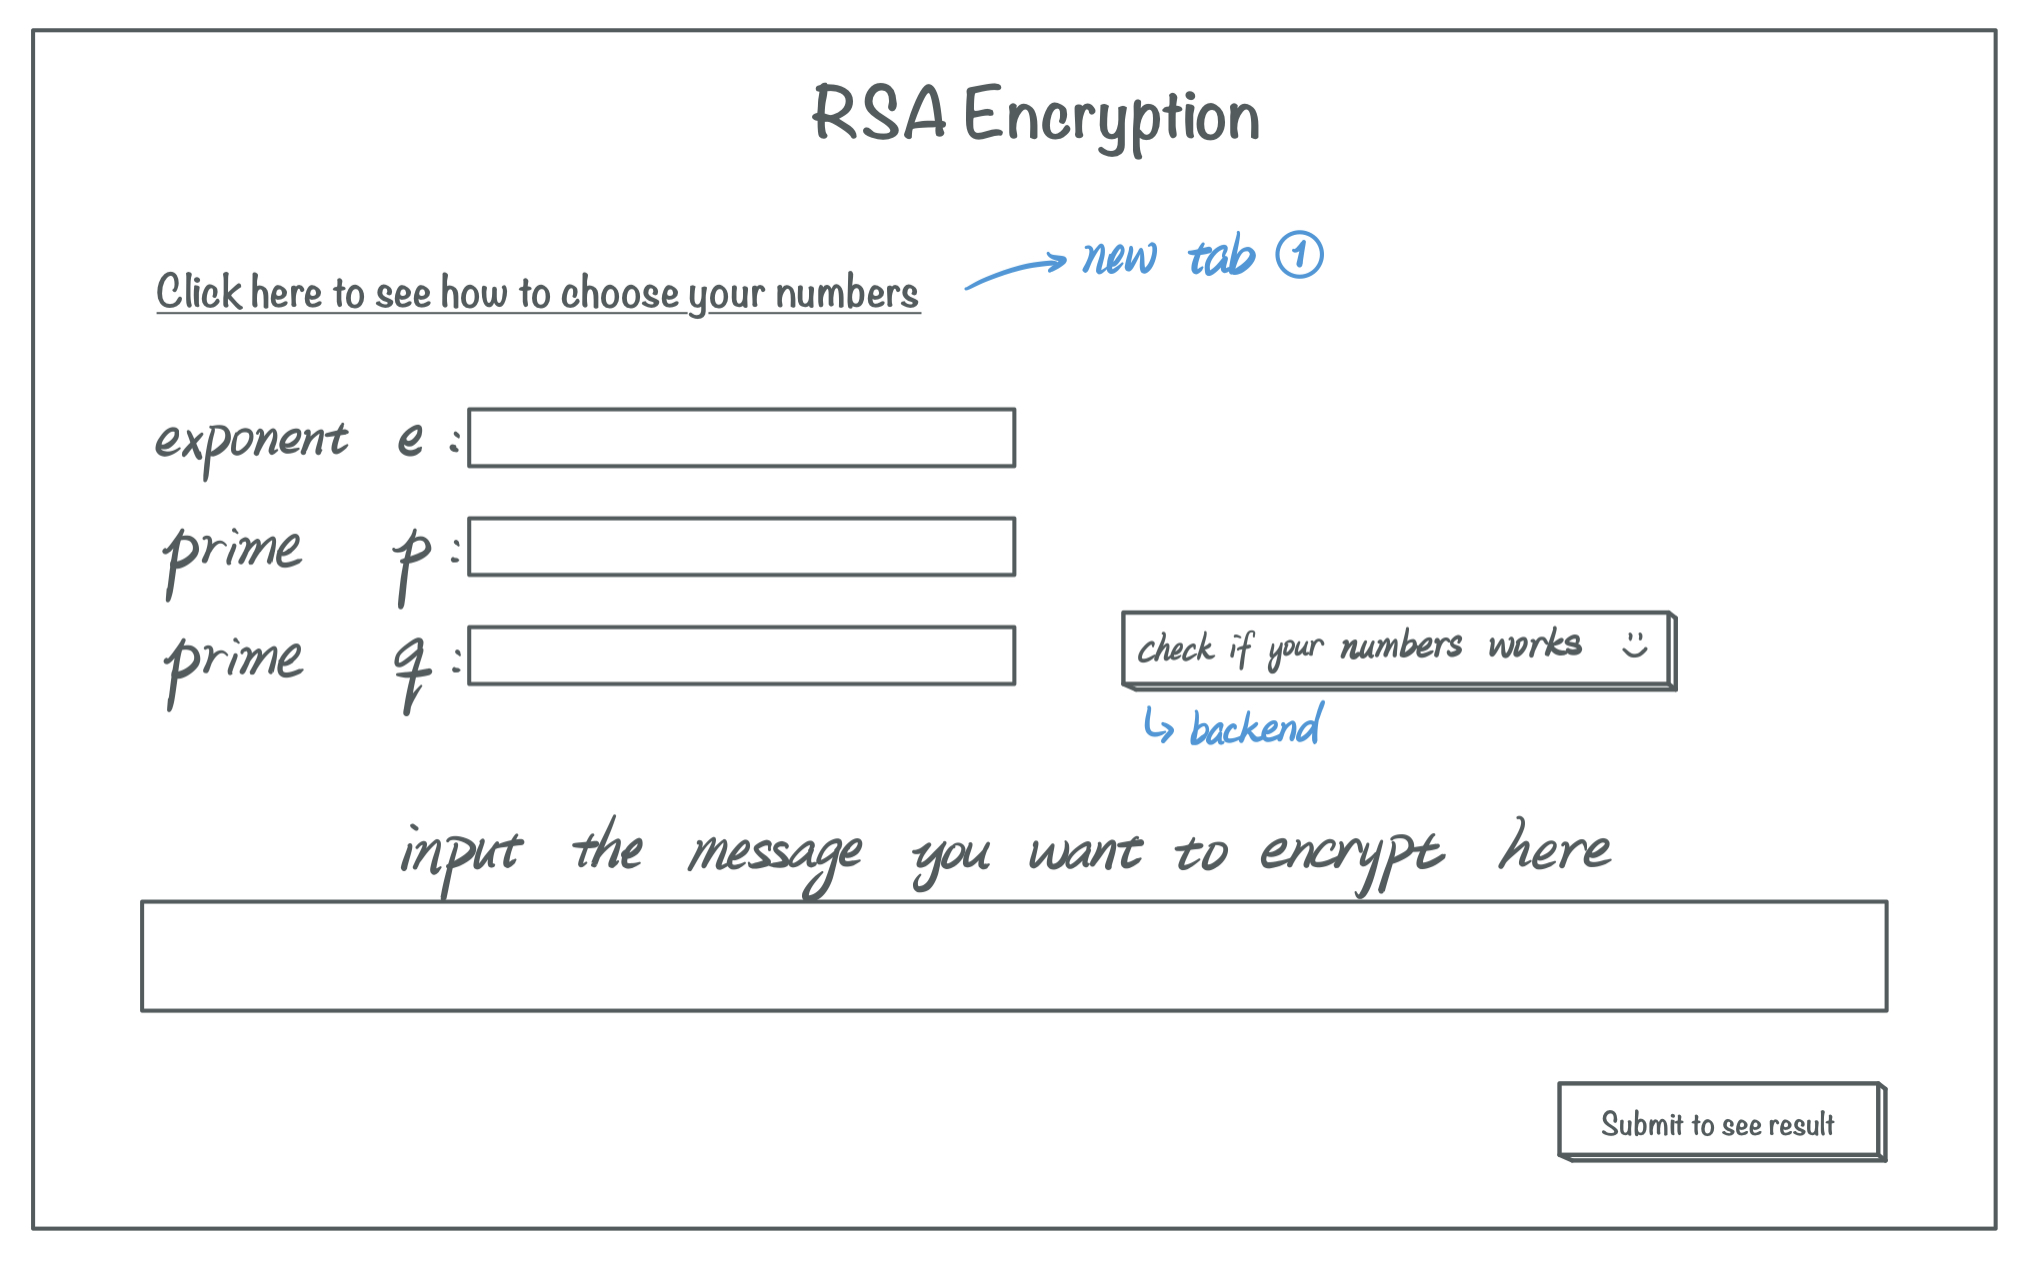 RSA Encryption
Click here to see how to choose your numbers → new tab ①
exponent e :
prime p :
prime q :
check if your numbers works :)
↳ backend
input the message you want to encrypt here
Submit to see result